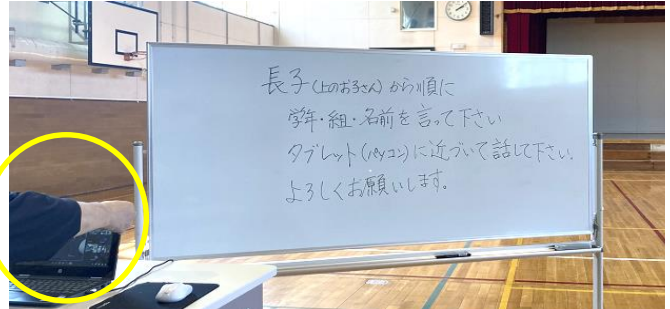 長子(上のお子さん)から順に
学年・組・名前を言って下さい
タブレット(パソコン)に近づいて話して下さい.
よろしくお願いします。